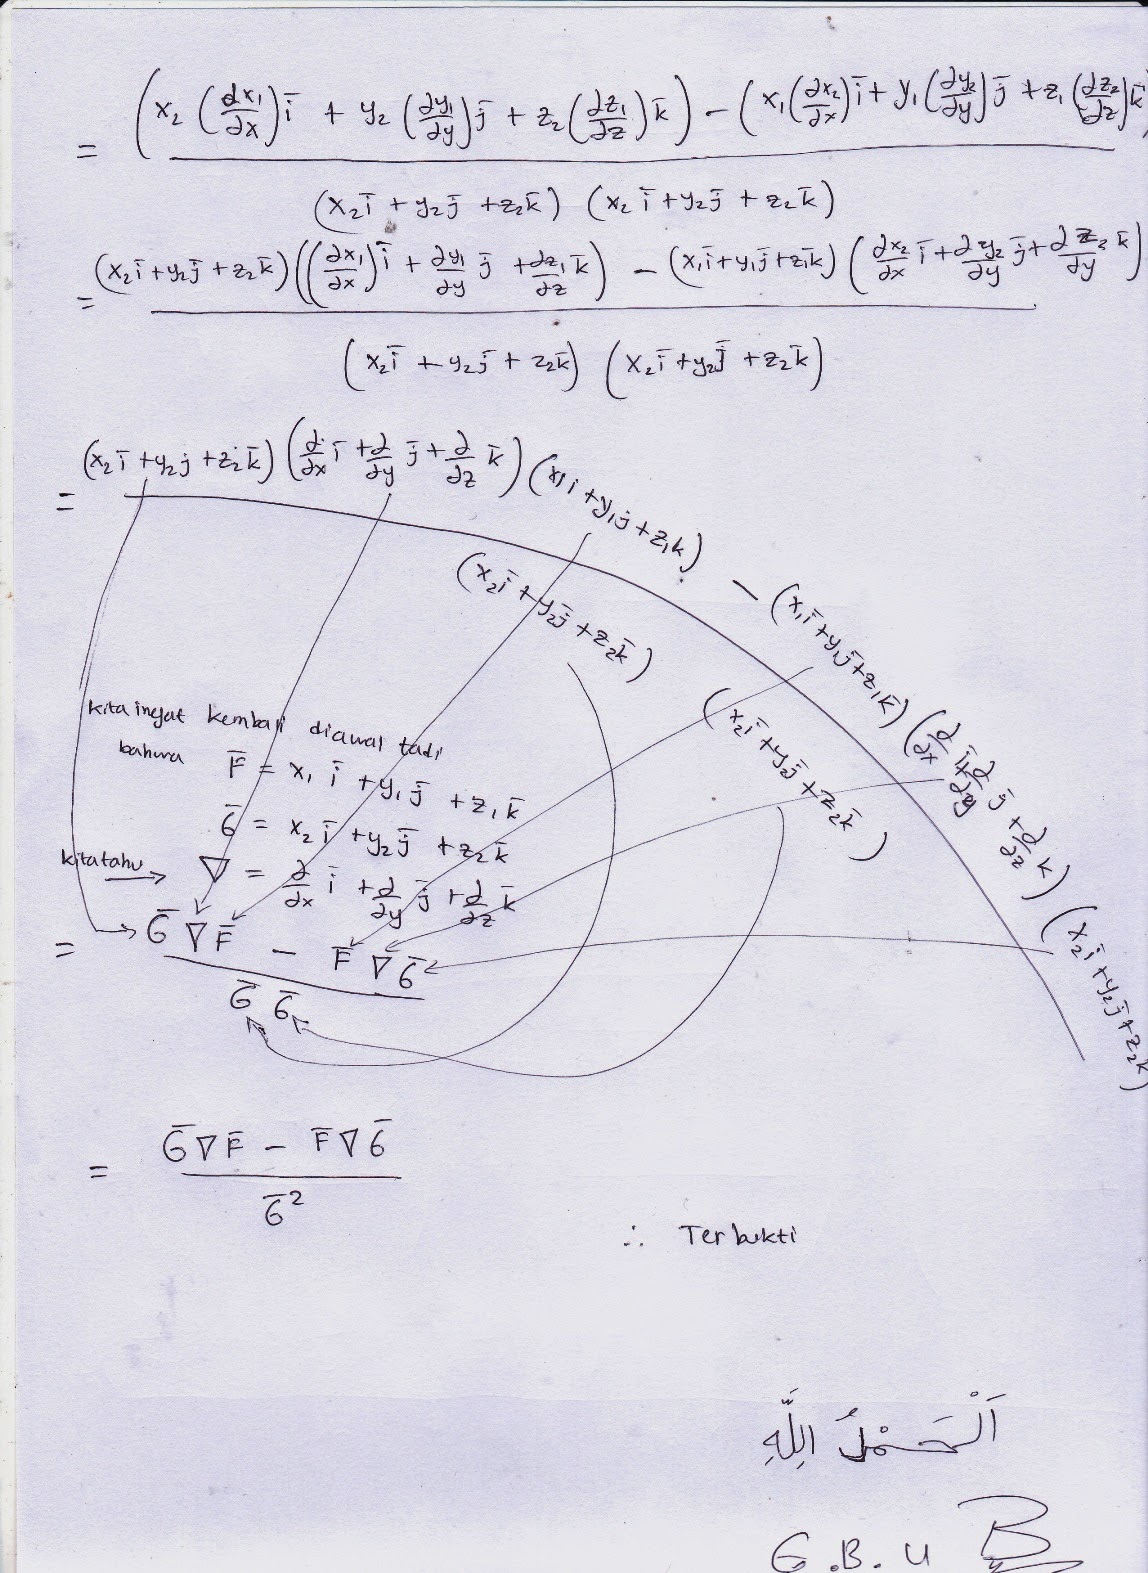 = ( x₂ (∂x₁/∂x) i̅ + y₂ (∂y₁/∂y) j̅ + z₂ (∂z₁/∂z) k̅ ) − ( x₁ (∂x₂/∂x) i̅ + y₁ (∂y₂/∂y) j̅ + z₁ (∂z₂/∂z) k̅
(x₂ i̅ + y₂ j̅ + z₂ k̅) (x₂ i̅ + y₂ j̅ + z₂ k̅)
= (x₂ i̅ + y₂ j̅ + z₂ k̅) ((∂x₁/∂x) i̅ + ∂y₁/∂y j̅ + ∂z₁/∂z k̅) − (x₁ i̅ + y₁ j̅ + z₁ k̅) (∂x₂/∂x i̅ + ∂y₂/∂y j̅ + ∂z₂/∂y k̅)
(x₂ i̅ + y₂ j̅ + z₂ k̅) (x₂ i̅ + y₂ j̅ + z₂ k̅)
= (x₂ i̅ + y₂ j + z₂ k̅) (∂/∂x i̅ + ∂/∂y j̅ + ∂/∂z k̅) (x₁ i + y₁ j + z₁ k) − (x₁ i̅ + y₁ j̅ + z₁ k̅) (∂/∂x i̅ + ∂/∂y j̅ + ∂/∂z k) (x₂ i + y₂ j̅ + z₂ k)
(x₂ i̅ + y₂ j̅ + z₂ k̅) (x₂ i̅ + y₂ j̅ + z₂ k̅)
kita ingat kembali diawal tadi
bahwa F̅ = x₁ i̅ + y₁ j̅ + z₁ k̅
G̅ = x₂ i̅ + y₂ j̅ + z₂ k̅
kita tahu → ∇ = ∂/∂x i̅ + ∂/∂y j̅ + ∂/∂z k̅
= G̅ ∇ F̅ − F̅ ∇ G̅
G̅ G̅
= G̅ ∇ F̅ − F̅ ∇ G̅
G̅²
∴ Terbukti
اَلْحَمْدُ اللَّهِ
G.B.U B